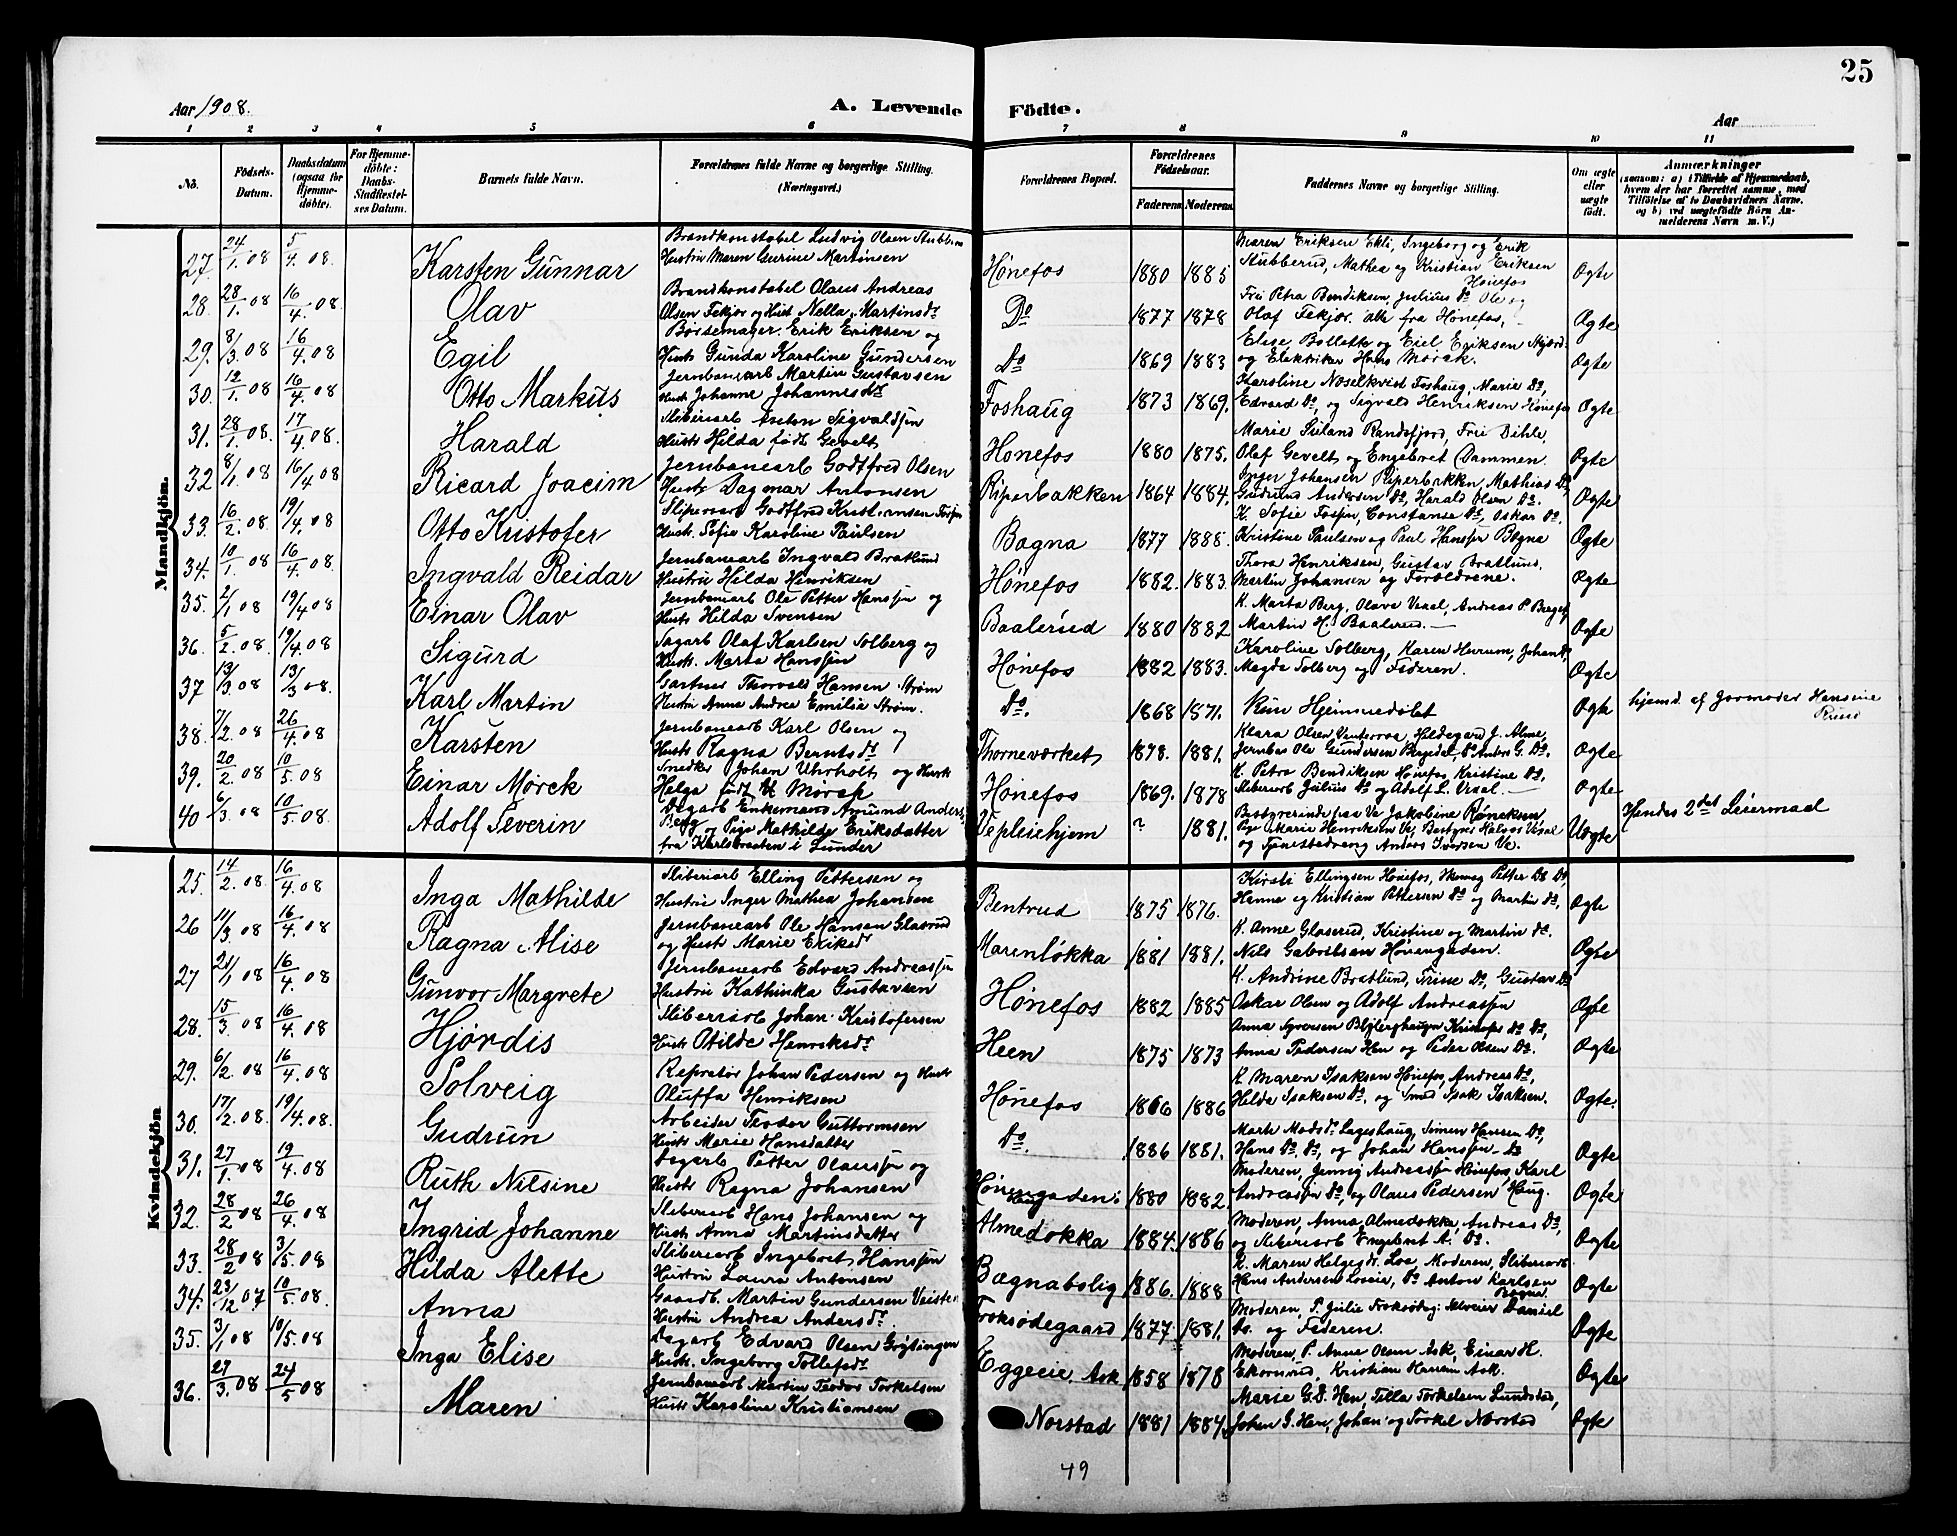 25
Aar 1908.
A. Levende Födte.
Aar
1 2 3 4 5 6 7 8 9 10 11
No. Födsels-Datum. Daabsdatum (ogsaa for Hjemme-döbte). For Hjemme-döbte: Daabs-Stadfæstel-ses Datum. Barnets fulde Navn. Forældrenes fulde Navne og borgerlige Stilling. (Næringsvei.) Forældrenes Bopæl. Forældrenes Födselsaar. Faderens. Moderens. Faddernes Navne og borgerlige Stilling. Om ægte eller uægte födt. Anmærkninger (saasom: a) i Tilfælde af Hjemmedaab, hvem der har forrettet samme, med Tilföielse af to Daabsvidners Navne, og b) ved uægtefödte Börn An-melderens Navn m. V.)
Mandkjön.
27. 24/1.08 5/4.08. Karsten Gunnar Brandkonstabel Ludvig Olsen Stubberud Hustru Maren Gurine Martinsen Hønefos 1880 1885 Maren Eriksen Ekli, Ingeborg og Erik Stubberud, Mathea og Kristian Eriksen Hønefos Ægte
28. 28/1.08 16/4.08. Olav Brandkonstabel Olaus Andreas Olsen Fekjær og Hust. Nella Martinsdr Do 1877 1878 Frei Petra Bendiksen, Julius Do Ole og Olaf Fekjær. alle fra Hønefos, Ægte
29. 8/3.08 16/4.08 Egil Børsemager Erik Eriksen og Hust. Gunda Karoline Gundersen Do 1869 1883 Elise, Bollette og Eiel Eriksen og Elektriker Hans Mörck. Ægte
30. 12/1.08 16/4.08 Otto Markus Jernbanearb Martin Gustavsen Hust Johanne Johannesdtr Foshaug 1873 1869. Karoline Foshaug, Marie Do, Edvard Do, og Sigvald Henriksen Hønefos Ægte
31. 28/1.08. 17/4.08. Harald Sliberiarb Anton Sigvaldsen Hust. Hilda født Gevelt Hønefos 1880 1875. Marie Randsfjord, Frei Dihle, Olaf Gevelt og Engebret Dammen. Ægte
32 8/1.08 16/4 08 Ricard Joacim Jernbanearb Godtfred Olsen Hust. Dagmar Antonsen Riperbakken 1864 1884. Inger Johansen Riperbakken, Mathias Do, Gudrund Andersen Do, Harald Olsen Do. Ægte
33. 16/2.08. 19/4.08 Otto Kristofer Godtfred Kristiansen Hust. Sofie Karoline Paulsen Bægna 1877 1885. K. Sofie Constanse Do, Oskar Do. Kristine Paulsen og Paul Hansen Bægna Ægte
34. 10/1.08 16/4.08. Ingvald Reidar Jernbanearb Ingvald Bratlund Hustru Hilda Henriksen Hønefos 1882. 1883. Thora Henriksen, Gustav Bratlund, Martin Johansen og Forældrene. Ægte
35. 2/1 08 19/4 08 Einar Olav Jernbanearb Ole Petter Hansen og Hust. Hilda Svensen Baalerud 1880 1882 K. Marta Berg, Olava Vesal, Andreas P. Martin H. Baalerud. Ægte
36. 5/2.08. 19/4 08 Sigurd Sagarb Olaf Karlsen Solberg og Hust. Marta Hansen Hønefos 1882 1883. Karoline Solberg, Karen Johan Do, Magda Solberg og Faderen. Ægte
37 13/3.08 13/3.08. Karl Martin Gartner Thorvald Hansen Strøm Hustru Anna Andrea Emilie Strøm. Do. 1868 1871. Kun Hjemmedøbt Ægte hjemd. af Jormoder Hansine Ruud
38. 7/2.08 26/4.08 Karsten Jernbanearb Karl Olsen og Hust Ragna Berntsdr Thorneværket 1878. 1881. Klara Olsen Hildegard J. Alme, Ole Gundersen Do. Ægte
39. 20/2.08 10/5.08 Einar Mørck Snedker Johan Uhrholt og Hust Helga født Mörck Hønefos 1869. 1878 K. Petra Bendiksen Hønefos, Kristine Do, Sliberiarb Julius Do og Adolf L. Vesal. Ægte
40 6/3.08 10/5.08. Adolf Severin Dagarb Enkemand Amund Anders. Berg Pige Mathilde Eriksdatter fra Karlsbraaten i Lunder Vepleiehjem ? 1881. Bestyrerinde paa Ve Jakobine Pige Marie Henriksen Ve, Bestyrer Halvor Vesal og Tjenestedreng Anders Iversen Ve. Uægte Hendes 2det Leiermaal
Kvindekjön
25. 14/2.08. 16/4.08 Inga Mathilde Sliberiarb Elling Pettersen og Hustru Inger Mathea Johansen Bentrud 1875 1876. Kirsti Ellingsen Hønefos, Petter Do Do, Hanna og Kristian Pettersen Do og Martin Do, Ægte
26 11/3.08 16/4.08 Ragna Alise Jernbanearb Ole Hansen Glaserud og Hust Marie Eriksdr Marenløkka 1881 1881. K. Anne Glaserud, Kristine og Martin do. Nils Gabrielsen Hønengaden. Ægte
27 21/1 08 16/4.08 Gunvor Margrete Jernbanearb Edvard Andreassen Hustru Kathinka Gustavsen Hønefos 1882 1885 K. Andrine Bratlund, Trine Do, Gustav Do Oskar Olsen og Adolf Andreassen Ægte
28. 15/3.08 16/4.08 Hjørdis Sliberiarb Johan Kristofersen Hust Otilde Henriksdr Heen 1875 1873 Anna Syversen Kristofer Do Do, Anna Pedersen Hen og Peder Olsen Do. Ægte
29. 6/2.08 16/4.08 Solveig Repratør Johan Pedersen og Hust Oluffa Henriksen Hønefos 1866 1886 K. Maren Isaksen Hønefos, Andreas Do, Hilda Isaksen Do, og Smed Isak Isaksen. Ægte.
30. 17/2.08. 19/4.08. Gudrun Arbeider Teodor Guttormsen Hust Marie Hansdatter Do. 1886 1881. Marte Madsdr Lageshaug, Simen Hansen Do, Hans Do Do, og Johan Hansen Do Ægte
31. 27/1.08 19/4.08 Ruth Nilsine Dagarb Petter Olaussen og Hust. Ragna Johansen Hønengaden. Haug 1880 1882. Moderen, Jenny Andreassen Hønefos, Karl Andreassen Do, og Olaus Pedersen Haug. Ægte
32. 28/2 08 26/4.08 Ingrid Johanne Sliberiarb Hans Johansen og Hust Anna Martinsdatter Almeløkka 1884. 1886 Moderen, Anna Almeløkka, Andreas Do, og Sliberiarb Engebret A. Do. Ægte
33. 28/2 08 3/5.08 Hilda Alette Sliberiarb Ingebret Hansen Hustru Laura Antonsen Bægnabolig 1886. 1888 K. Maren Helgesdr. Loe Moderen, Sliberiarb Hans Andersen Do Anton Karlsen Bægna. Ægte
34. 23/12 07 10/5.08. Anna Gaardb. Martin Gundersen Hustru Andrea Andersdr. 1877. 1881. Moderen, P. Julie Daniel Do. og Faderen. Ægte
35. 3/1 08 10/5.08 Inga Elise Dagarb Edvard Olsen Grytingen Hust. Ingeborg Tollefsdr Eggeeie Ask 1858 1878 Moderen, P. Anne Olsen Ask, Einar H. Ekornrud, Kristian Hansen Ask. Ægte
36. 27/3.08 24/5 08 Maren Jernbanearb Martin Teodor Torkelsen Hust Karoline Kristiansen Norstad 1881 1884 Marie G.D. Hen, Tilla Torkelsen Lundstad, Johan G. Hen, Johan og Torkel Norstad Ægte
49